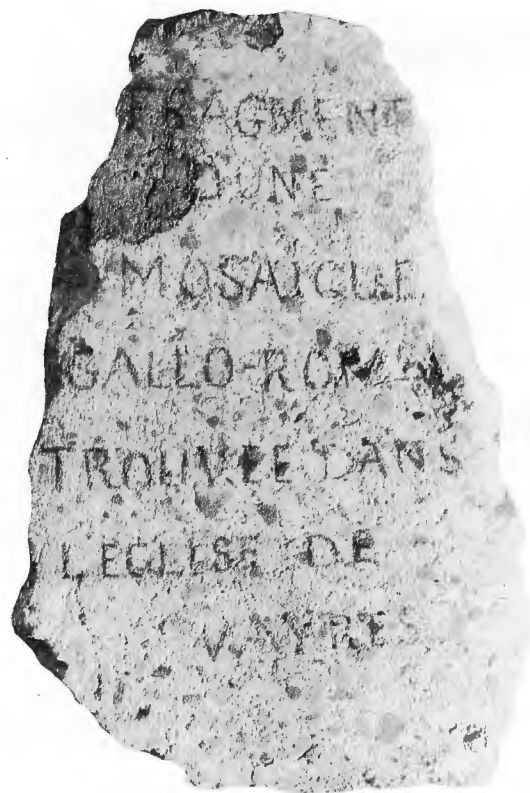 FRAGMENT
DUNE
MOSAIQUE
GALLO-ROMAI
TROUVEE DANS
L'EGLISE DE